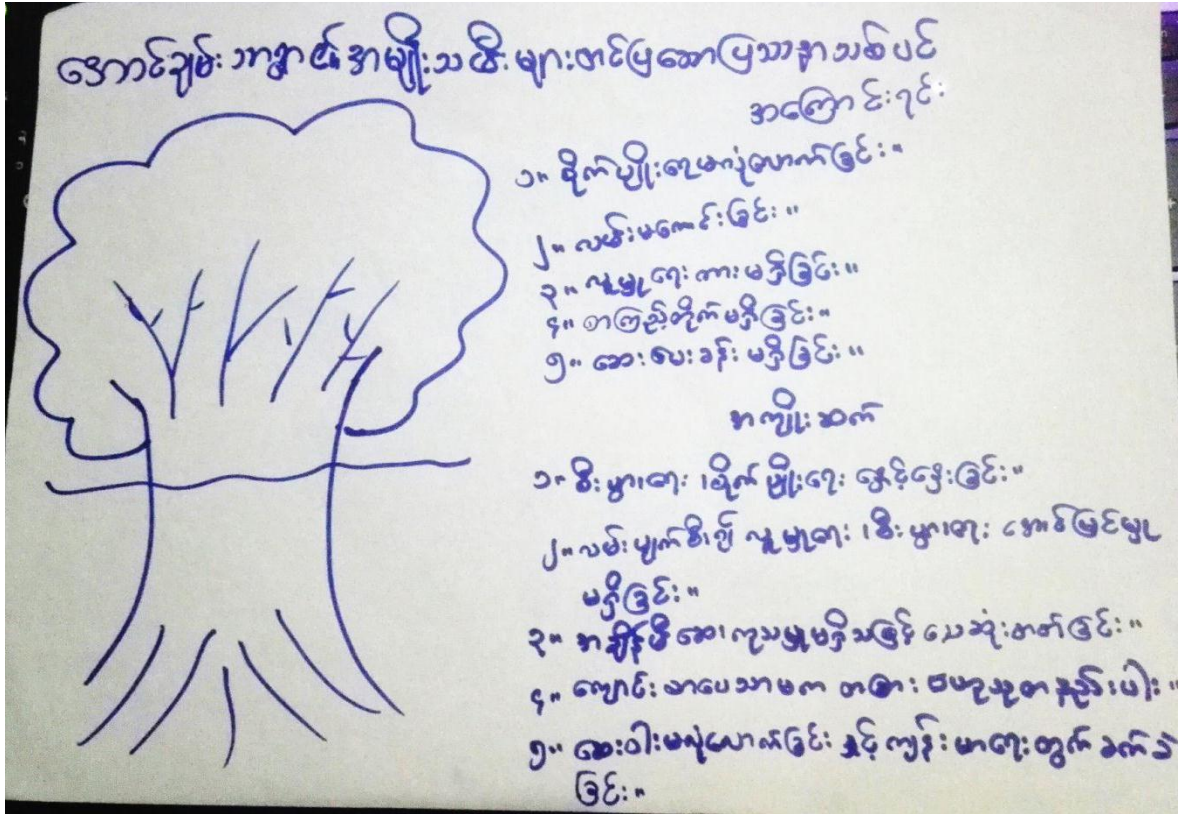 အောင်ချမ်းသာရွာ၏ အမျိုးသမီးများတင်ပြသောပြဿနာသစ်ပင်
အကြောင်းရင်း
၁။ စိုက်ပျိုးရေမလုံလောက်ခြင်း။
၂။ လမ်းမကောင်းခြင်း။
၃။ လူမှုရေးကားမရှိခြင်း။
၄။ စာကြည့်တိုက်မရှိခြင်း။
၅။ ဆေးပေးခန်းမရှိခြင်း။
အကျိုးဆက်
၁။ စီးပွားရေး၊ စိုက်ပျိုးရေး နှောင့်နှေးခြင်း။
၂။ လမ်းပျက်စီး၍ လူမှုရေး၊ စီးပွားရေး အောင်မြင်မှု
မရှိခြင်း။
၃။ အချိန်မီဆေးကုသမှုမရှိသဖြင့် သေဆုံးတတ်ခြင်း။
၄။ ကျောင်းစာပေသာမက တခြား ဗဟုသုတနည်းပါး။
၅။ ဆေးဝါးမလုံလောက်ခြင်းနှင့်ကျန်းမာရေးတွက်ခက်ခဲ
ခြင်း။